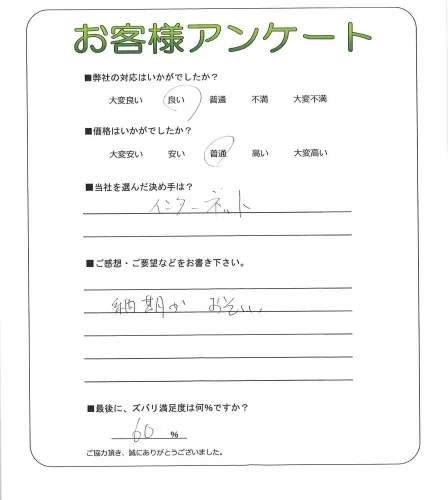 お客様アンケート
■弊社の対応はいかがでしたか?
大変良い 良い 普通 不満 大変不満
■価格はいかがでしたか?
大変安い 安い 普通 高い 大変高い
■当社を選んだ決め手は?
インターネット
■ご感想・ご要望などをお書き下さい。
納期が おそい
■最後に、ズバリ満足度は何%ですか?
60 %
ご協力頂き、誠にありがとうございました。